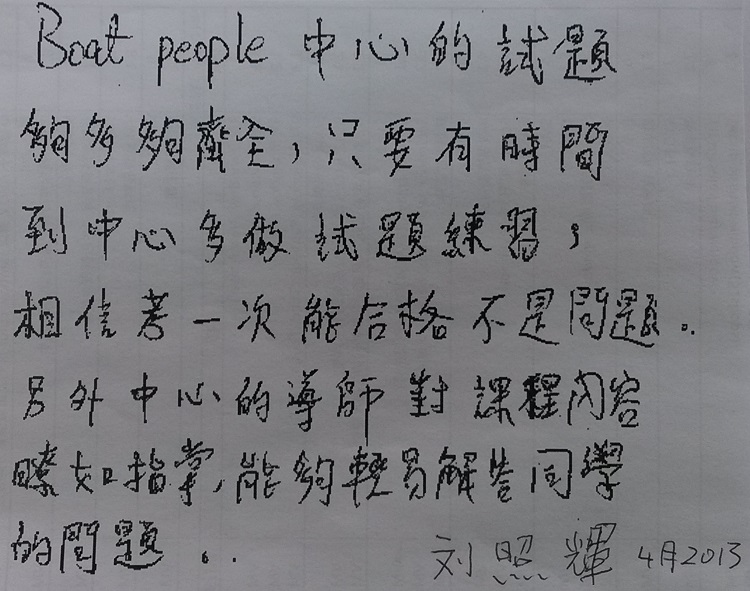 Boat people 中心的試題
夠多夠齊全，只要有時間
到中心多做試題練習，
相信考一次能合格不是問題。
另外中心的導師對課程內容
瞭如指掌，能夠輕易解答同學
的問題。.
刘照輝 4月2013